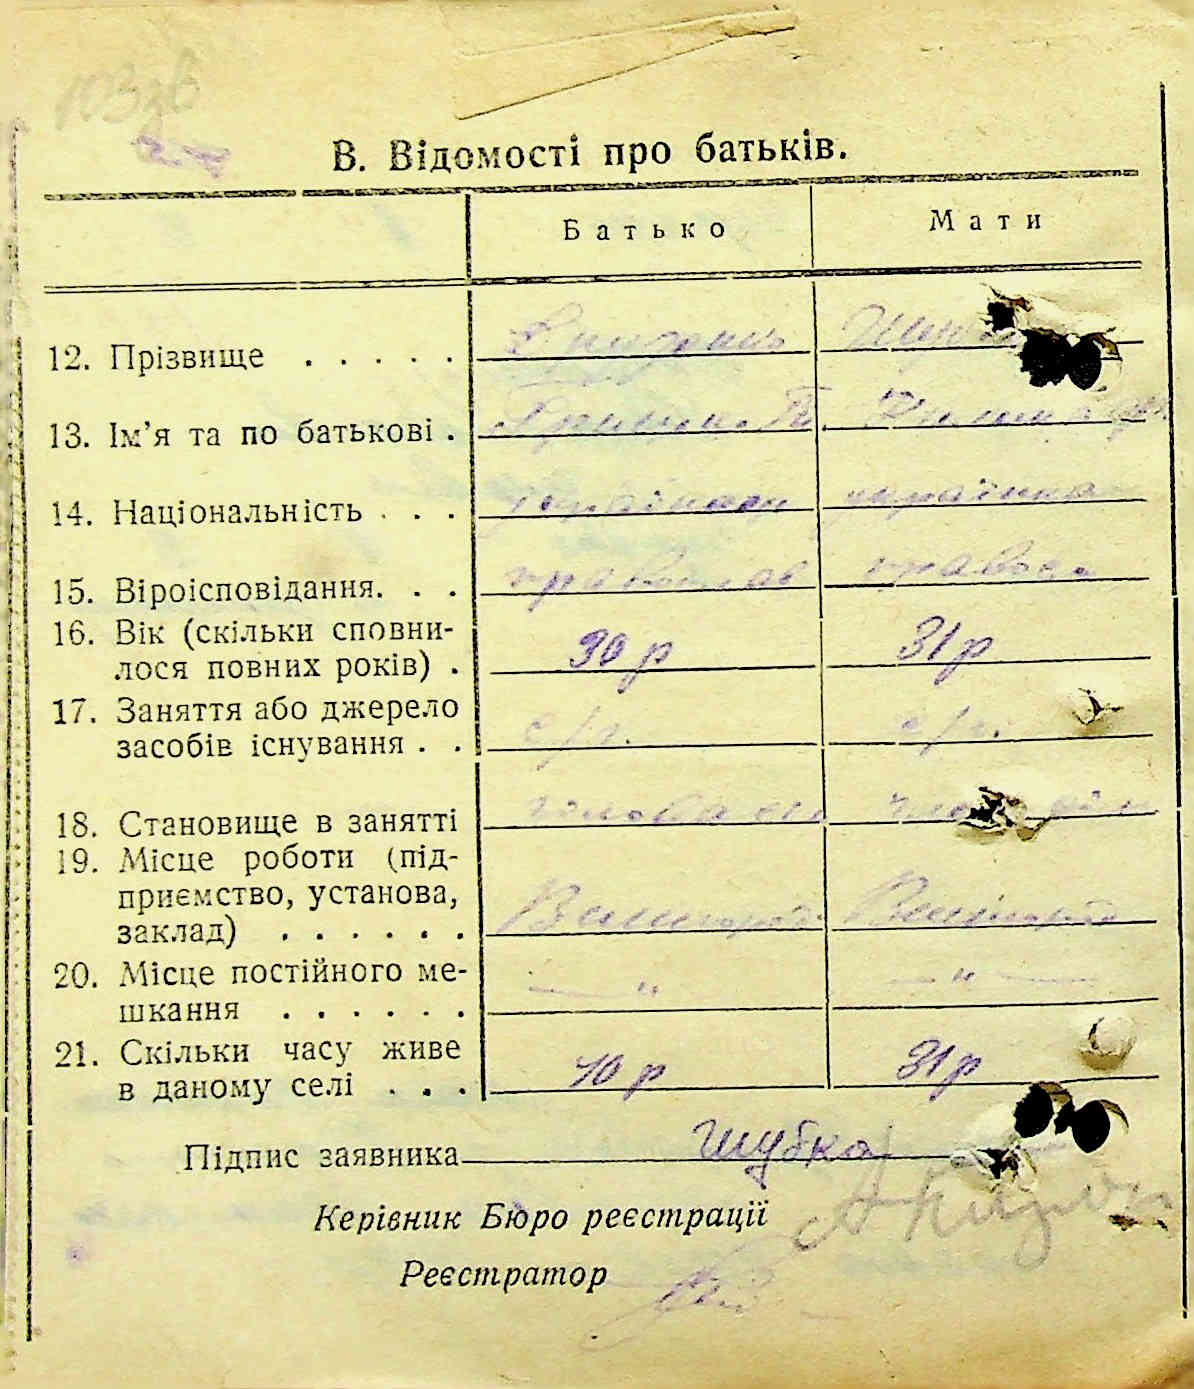 В. Відомості про батьків.
Батько Мати
12. Прізвище . . . . .
13. Ім’я та по батькові .
14. Національність . . . українец українка
15. Віроісповідання. . . православ правос.
16. Вік (скільки сповни-
лося повних років) . 30 р 31 р
17. Заняття або джерело
засобів існування . . с/г. с/г.
18. Становище в занятті
19. Місце роботи (під-
приємство, установа,
заклад) . . . . . . Вишгород Вишгород
20. Місце постійного ме-
шкання . . . . . . — " — — " —
21. Скільки часу живе
в даному селі . . . 10 р 31 р
Підпис заявника Шубка
Керівник Бюро реєстрації
Реєстратор